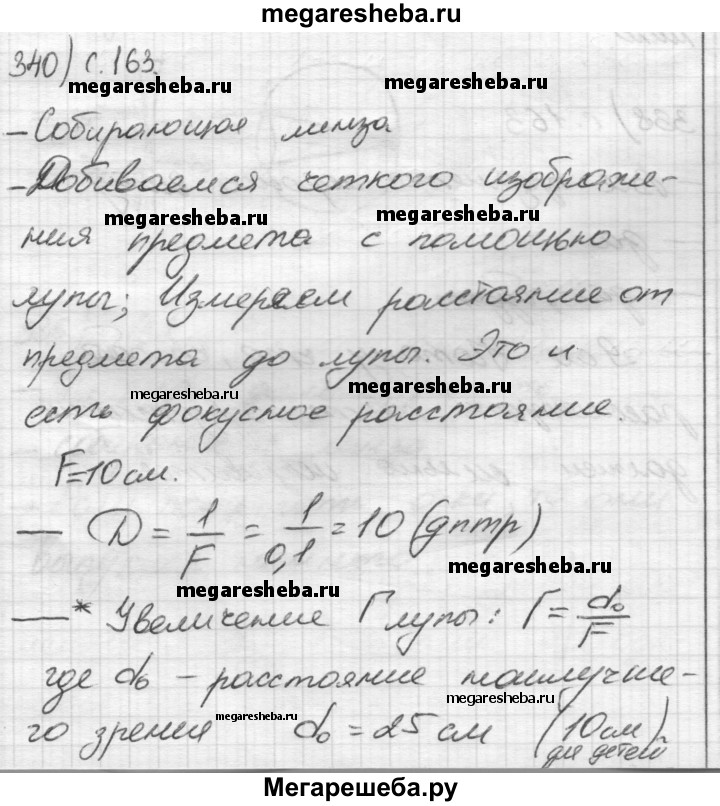 megaresheba.ru
340) с. 163.
megaresheba.ru megaresheba.ru
– Собирающая линза
– Добиваемся четкого изображе-
megaresheba.ru megaresheba.ru
ния предмета с помощью
лупы; Измеряем расстояние от
предмета до лупы. Это и
megaresheba.ru megaresheba.ru
есть фокусное расстояние.
F=10 см.
— D = 1/F = 1/0,1 = 10 (дптр)
megaresheba.ru
megaresheba.ru
—* Увеличение Г лупы: Г = d₀/F
где d₀ – расстояние наилучше-
megaresheba.ru
megaresheba.ru
го зрения d₀ = 25 см (10 см)
для детей
megaresheba.ru
Мегарешеба.ру